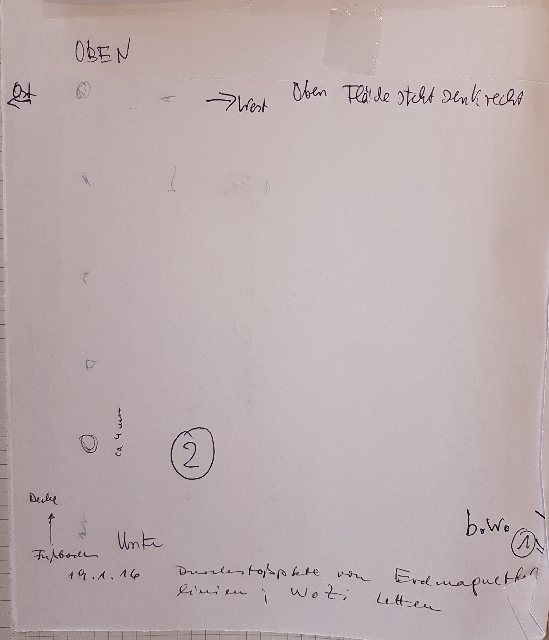 OBEN
Ost
→ West
Oben Fläche steht senkrecht
ca 4 mm
2
Decke
Fußboden
Unten
b.Wo.
1
19.1.16 von Erdmagnetfeld
linien ; WoZi